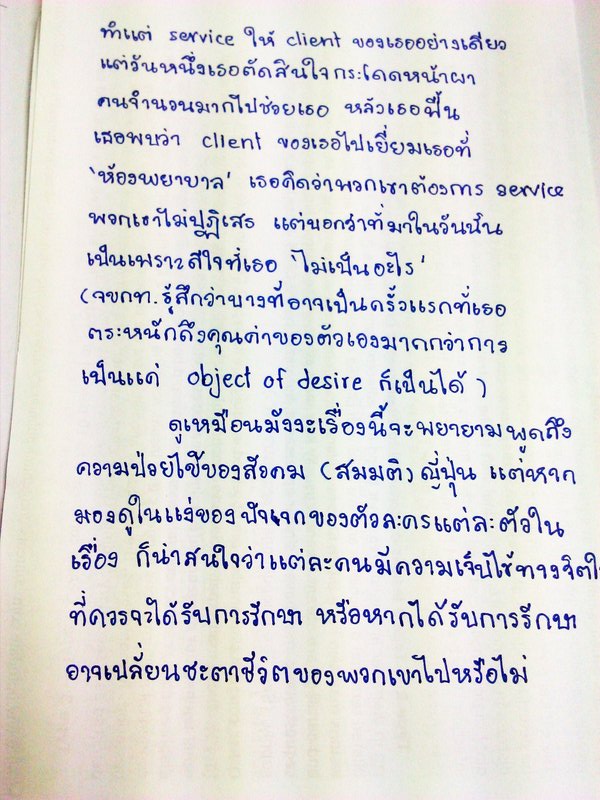 ทำแต่ service ให้ client ของเธออย่างเดียว
แต่วันหนึ่งเธอตัดสินใจกระโดดหน้าผา
คนจำนวนมากไปช่วยเธอ หลังเธอฟื้น
เธอพบว่า client ของเธอไปเยี่ยมเธอที่
'ห้องพยาบาล' เธอคิดว่าพวกเขาต้องการ service
พวกเขาไม่ปฏิเสธ แต่บอกว่าที่มาในวันนั้น
เป็นเพราะดีใจที่เธอ 'ไม่เป็นอะไร'
(จขกท. รู้สึกว่าบางทีอาจเป็นครั้งแรกที่เธอ
ตระหนักถึงคุณค่าของตัวเองมากกว่าการ
เป็นแค่ object of desire ก็เป็นได้)
ดูเหมือนมังงะเรื่องนี้จะพยายามพูดถึง
ความป่วยไข้ของสังคม (สมมติ) ญี่ปุ่น แต่หาก
มองดูในแง่ของปัจเจกของตัวละครแต่ละตัวใน
เรื่อง ก็น่าสนใจว่าแต่ละคนมีความเจ็บไข้ทางจิตใ
ที่ควรจะได้รับการรักษา หรือหากได้รับการรักษา
อาจเปลี่ยนชะตาชีวิตของพวกเขาไปหรือไม่